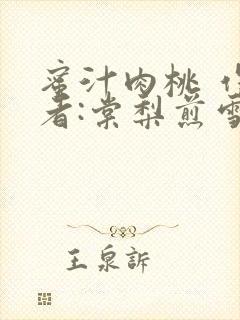 蜜汁肉桃 作
者:棠梨煎雪
王泉訴